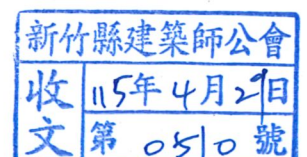 新竹縣建築師公會
收文
115年4月29日
第0510號